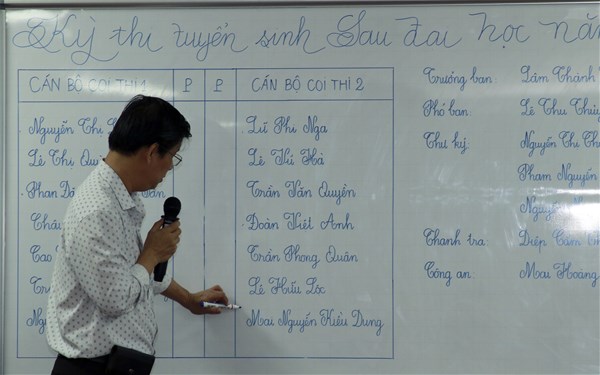 Kỳ thi tuyển sinh Sau đại học năm
CÁN BỘ COI THI 1 P P CÁN BỘ COI THI 2
Nguyễn Thị
Lê Thị
Phan
Lữ Phi Nga
Lê Vũ Hà
Trần Văn Quyền
Đoàn Việt Anh
Trần Phong Quân
Lê Hữu Lộc
Mai Nguyễn Kiều Dung
Trưởng ban: Lâm Thành
Phó ban: Lê Thu Thủy
Thư ký: Nguyễn Thị
Phạm Nguyễn
Nguyễn
Thanh tra: Diệp Cẩm
Công an: Mai Hoàng